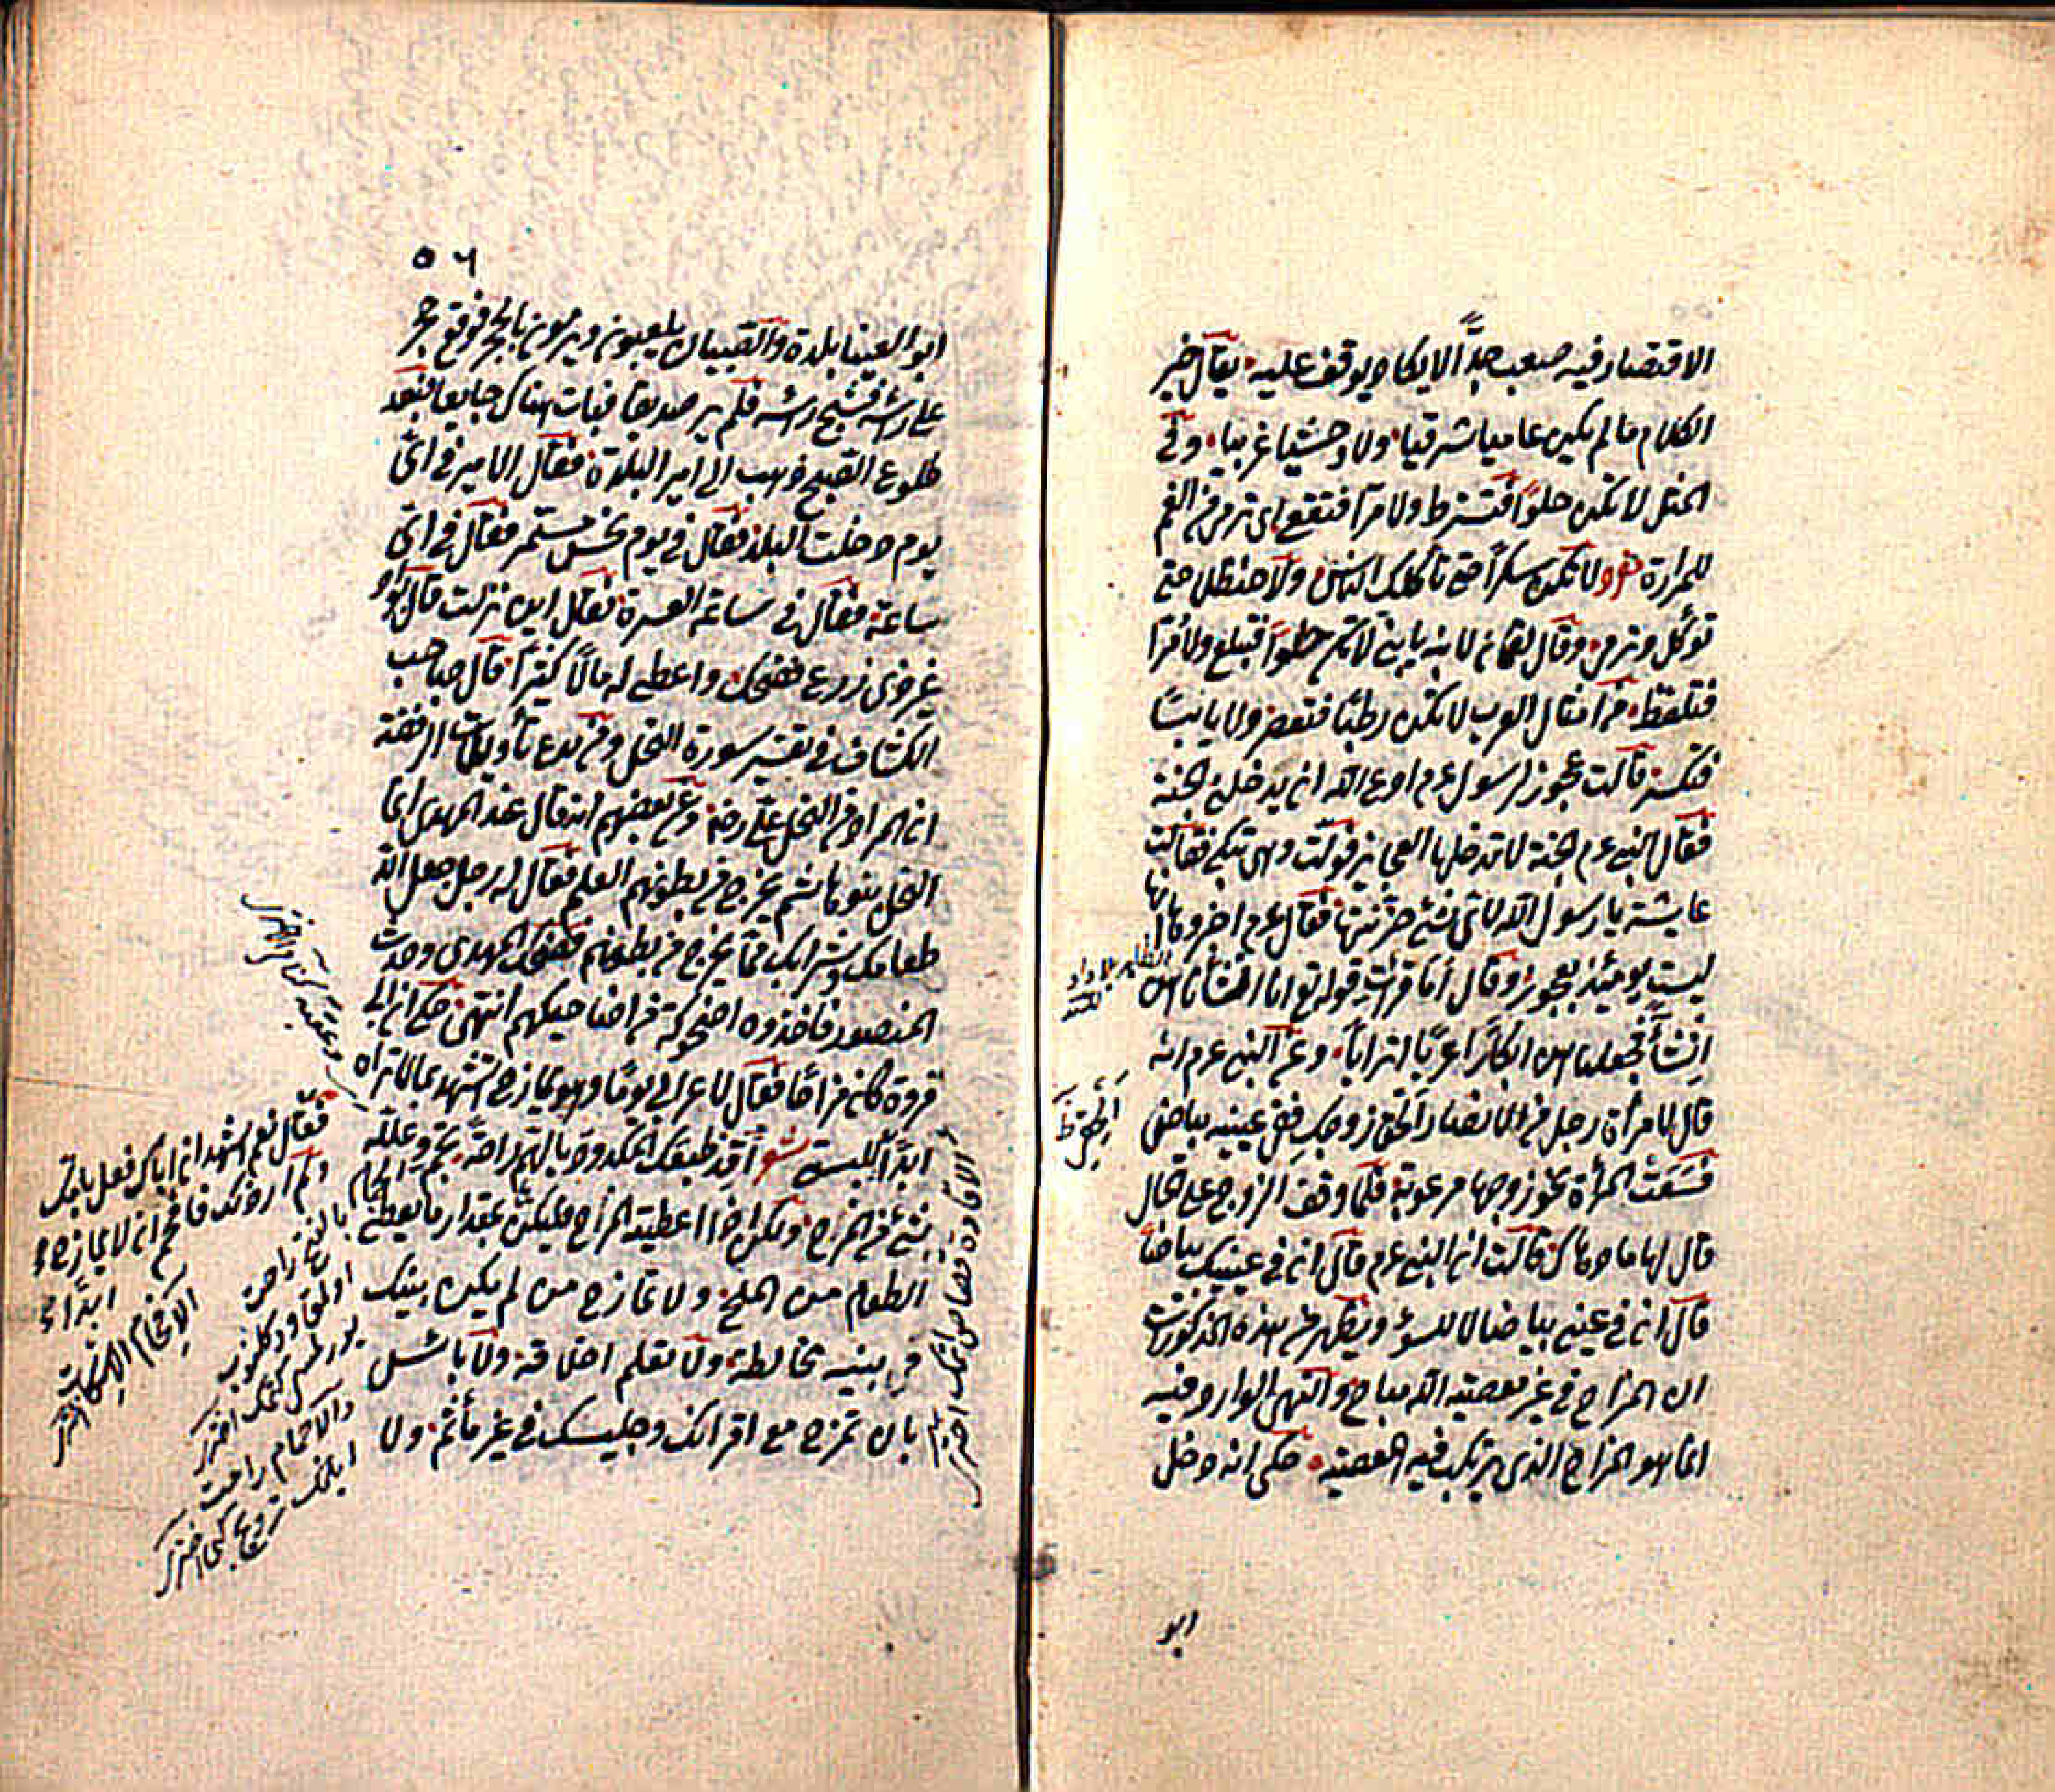 الاقتصاد فيه صعب جدًّا الا يكاد يوقف عليه يقال خير
الكلام ما لم يكن عاميا سرقيا ولا وحشيا غريبا وفى
المثل لا تكن حلوًا فتسترط ولا مرا فتقع اى ترمى من الفم
للمرارة ولا تكن سكرًا حتى تأكلك الناس ولا حنظلا حتى
تؤكل وترمى وقال لقمان لابنه يا بنى لا تكن حلوًا فتبلع ولا مرًا
فتلفظ من امثال العرب لا تكن رطبًا فتعصر ولا يابسًا
فتكسر قالت عجوز لرسول عم ادع الله ان يدخلنى الجنة
فقال النبى عم الجنة لا تدخلها العجائز فولت وهى تبكى فقالت
عايشة يا رسول الله لاى شئ حزنتها فقال عم اخبروها انها
ليست يومئذ بعجوز وقال أما قرأت قوله تع انا انشأناهن
انشاءً فجعلناهن ابكارًا عربًا اترابًا وعن النبى عم انه
قال لامرأة رجل من الانصار الحقى زوجك ففى عينيه بياض
فسعت المرأة نحو زوجها مرعوبة فلما وقف الزوج على الحال
قال لها ما دهاك قالت ان النبى عم قال ان فى عينيك بياضًا
قال ان فى عينى بياضا لا للسوء ويظهر من هذه المذكورات
ان المزاح فى غير معصية الله مباح والنهى الوارد فيه
انما هو المزاح الذى يرتكب فيه المعصية حكى انه دخل
ابو
٥٦
ابو العينا بلدة والصبيان يلعبون ويرمون بالحجر فوقع حجر
على رأسه فشج رأسه فلم ير صديقا فبات هناك جايعا فبعد
طلوع الصبح ذهب الى امير البلدة فقال الامير فى اى
يوم دخلت البلد فقال فى يوم نحس مستمر فقال فى اى
ساعة فقال فى ساعة العسرة فقال اين نزلت قال بواد
غير ذى زرع فضحك واعطى له مالًا كثيرًا قال صاحب
الكشاف فى تفسير سورة النحل ومن بدع تأويلات الرافضة
ان المراد من النحل على رض وعن بعضهم انه قال عند المهدى انما
النحل بنو هاشم يخرج من بطونهم العلم فقال له رجل جعل الله
طعامك وشرابك مما يخرج من بطونهم فضحك المهدى وحدث
المنصور فاخذوه اضحوكة من اضاحيكهم انتهى حكى ان ابى
فروة كان مزاحًا فقال لاعرابى يومًا وهو يمازح اتشهد بما لا تراه
ابدًا البستى شعر أفد طبعك المكدود بالهم راحة يجم وعلله
بشئ من المزح ولكن اذا اعطيته المزح فليكن بمقدار ما يعطى
الطعام من الملح ولا تمازح من لم يكن بينك
وبينه مخالطة ولا تعلم اخلاقه ولا بأس
بان تمزح مع اقرانك وجليسك فى غير مأثم ولا
فقال نعم اشهد ان اباك فعل بامك
ولم ار ذلك فافحم ان لا يمازح
ابدًا